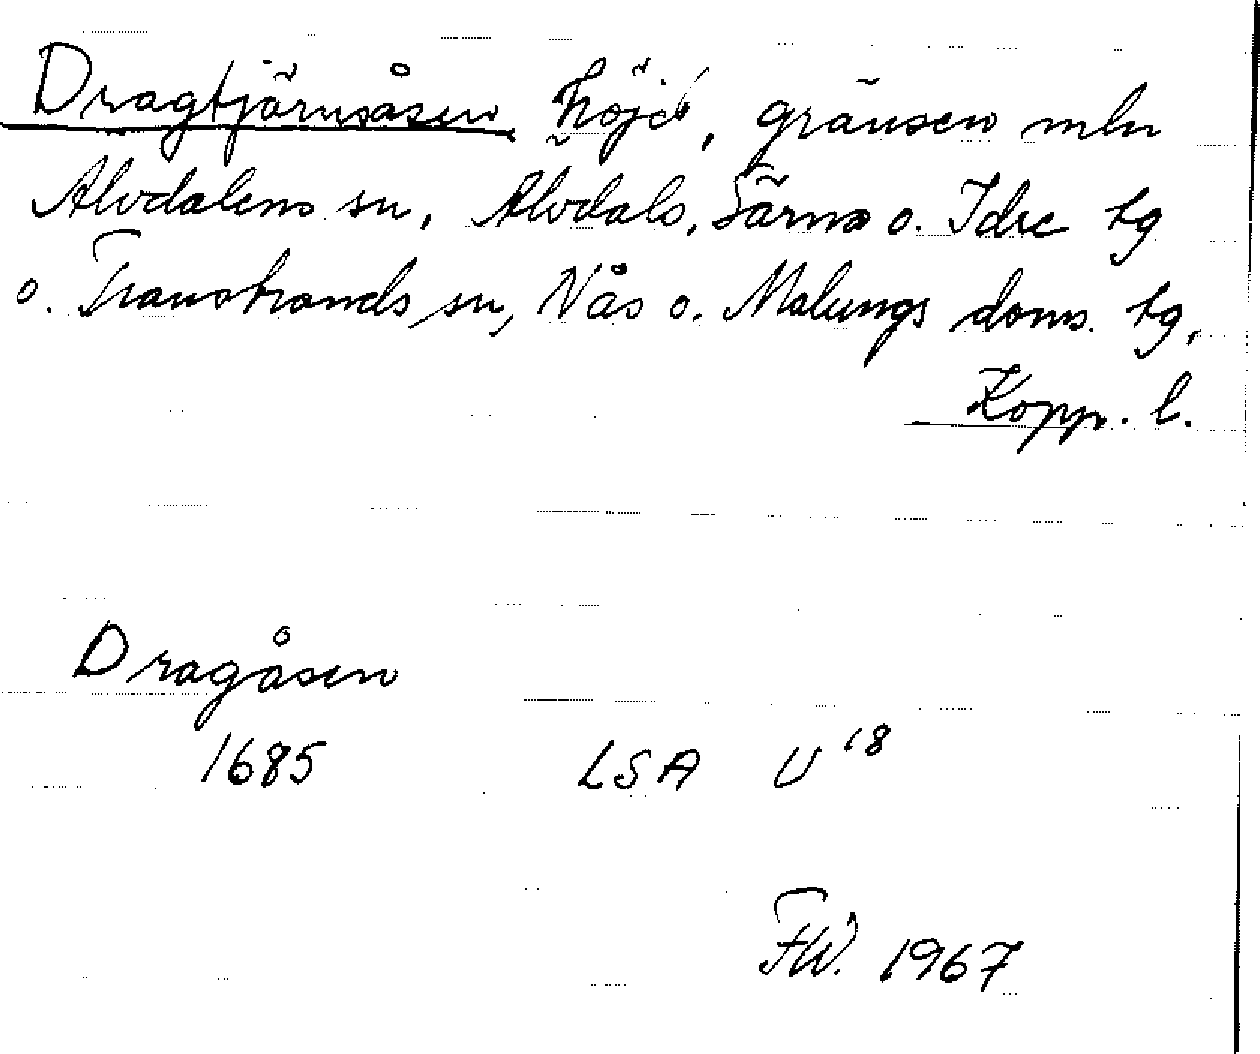 Dragtjärnsåsen höjd, gränsen mln
Älvdalens sn, Älvdals, Särna o. Idre tg
o. Transtrands sn, Nås o. Malungs doms. tg,
Kopp. l.
Dragåsen
1685 LSA U 18
FW. 1967